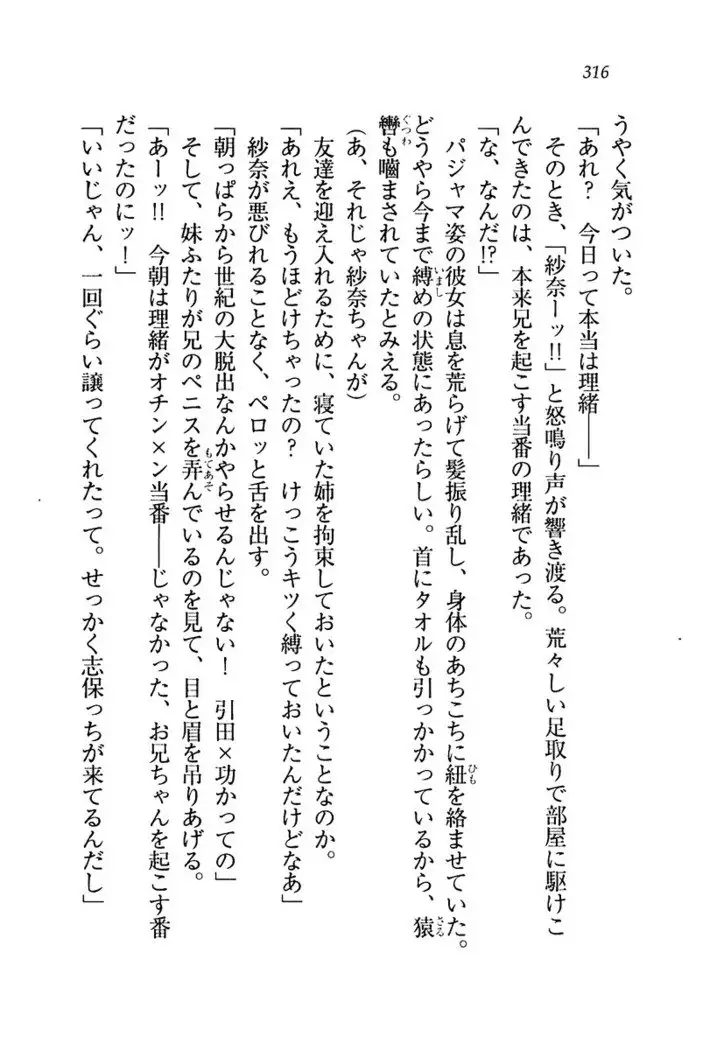 316
うやく気がついた。
「あれ？　今日って本当は理緒――」
そのとき、「紗奈ーッ!!」と怒鳴り声が響き渡る。荒々しい足取りで部屋に駆けこ
んできたのは、本来兄を起こす当番の理緒であった。
「な、なんだ!?」
パジャマ姿の彼女は息を荒らげて髪振り乱し、身体のあちこちに紐を絡ませていた。
どうやら今まで縛めの状態にあったらしい。首にタオルも引っかかっているから、猿
轡も嚙まされていたとみえる。
（あ、それじゃ紗奈ちゃんが）
友達を迎え入れるために、寝ていた姉を拘束しておいたということなのか。
「あれえ、もうほどけちゃったの？　けっこうキツく縛っておいたんだけどなあ」
紗奈が悪びれることなく、ペロッと舌を出す。
「朝っぱらから世紀の大脱出なんかやらせるんじゃない！　引田×功かっての」
そして、妹ふたりが兄のペニスを弄んでいるのを見て、目と眉を吊りあげる。
「あーッ!!　今朝は理緒がオチン×ン当番――じゃなかった、お兄ちゃんを起こす番
だったのにッ！」
「いいじゃん、一回ぐらい譲ってくれたって。せっかく志保っちが来てるんだし」